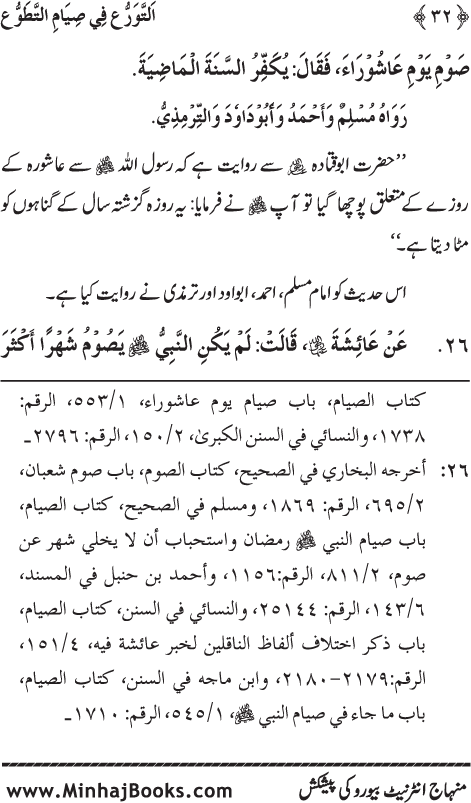 ﴿٣٢﴾ اَلتَّوَرُّع فِي صِيَامِ التَّطَوُّعِ
صَوْمِ يَوْمِ عَاشُوْرَاءَ، فَقَالَ: يُكَفِّرُ السَّنَةَ الْمَاضِيَةَ.
رَوَاهُ مُسْلِمٌ وَأَحْمَدُ وَأَبُوْدَاوُدَ وَالتِّرْمِذِيُّ.
’’حضرت ابوقتادہ ؓ سے روایت ہے کہ رسول اللہ ﷺ سے عاشورہ کے
روزے کے متعلق پوچھا گیا تو آپ ﷺ نے فرمایا: یہ روزہ گزشتہ سال کے گناہوں کو
مٹا دیتا ہے۔‘‘
اس حدیث کو امام مسلم، احمد، ابواود اور ترمذی نے روایت کیا ہے۔
٢٦. عَنْ عَائِشَةَ ؓ، قَالَتْ: لَمْ يَكُنِ النَّبِيُّ ﷺ يَصُوْمُ شَهْرًا أَكْثَرَ
كتاب الصيام، باب صيام يوم عاشوراء، ١/٥٥٣، الرقم:
١٧٣٨، والنسائي في السنن الكبرىٰ، ٢/١٥٠، الرقم: ٢٧٩٦ـ
٢٦: أخرجه البخاري في الصحيح، كتاب الصوم، باب صوم شعبان،
٢/٦٩٥، الرقم: ١٨٦٩، ومسلم في الصحيح، كتاب الصيام،
باب صيام النبي ﷺ رمضان واستحباب أن لا يخلي شهر عن
صوم، ٢/٨١١، الرقم:١١٥٦، وأحمد بن حنبل في المسند،
٦/١٤٣، الرقم: ٢٥١٤٤، والنسائي في السنن، كتاب الصيام،
باب ذكر اختلاف ألفاظ الناقلين لخبر عائشة فيه، ٤/١٥١،
الرقم:٢١٧٩-٢١٨٠، وابن ماجه في السنن، كتاب الصيام،
باب ما جاء في صيام النبي ﷺ، ١/٥٤٥، الرقم: ١٧١٠ـ
منہاج انٹرنیٹ بیورو کی پیشکش www.MinhajBooks.com